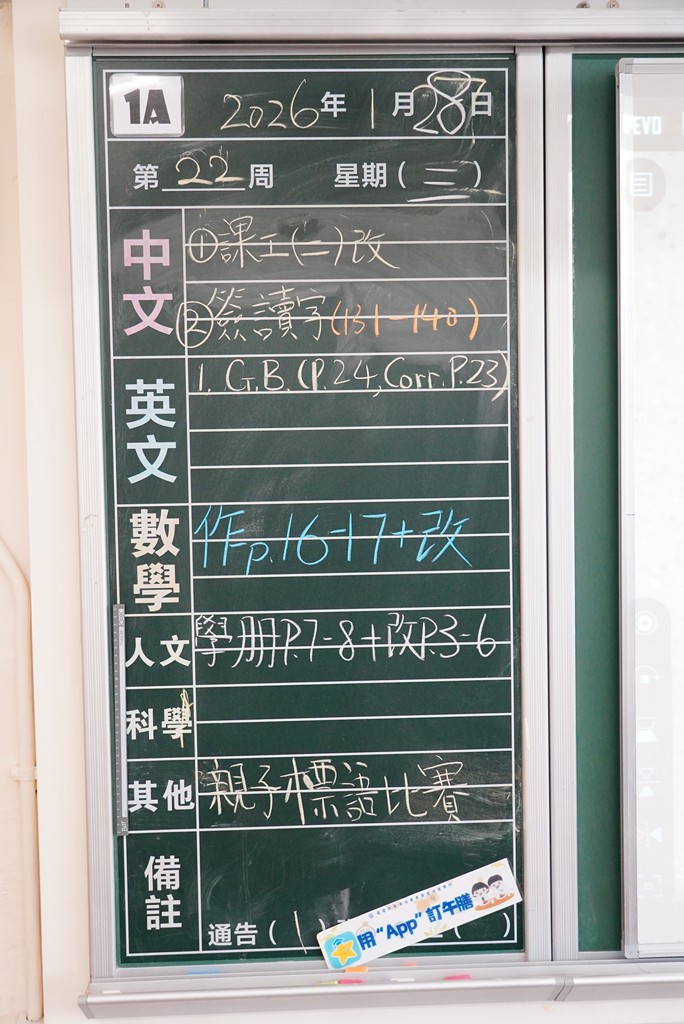 1A 2026年1月28日
第22周 星期(三)
中文 ①課工(二)改
②簽讀字(131-140)
英文 1. G.B.(P.24,Corr.P.23)
數學 作p.16-17+改
人文 學册P.7-8+改P.3-6
科學
其他 親子標語比賽
備註
通告(1)
用"App"訂午膳
EVO